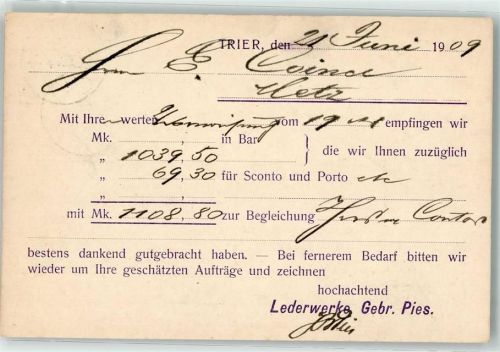 TRIER, den 21 Juni 1909
Herrn E.
Metz
Mit Ihrer werten Überweisung vom 19 empfingen wir
Mk. , in Bar
" 1039,50 } die wir Ihnen zuzüglich
" 69,30 für Sconto und Porto etc
mit Mk. 1108,80 zur Begleichung Ihres Contos
bestens dankend gutgebracht haben. — Bei fernerem Bedarf bitten wir
wieder um Ihre geschätzten Aufträge und zeichnen
hochachtend
Lederwerke Gebr. Pies.